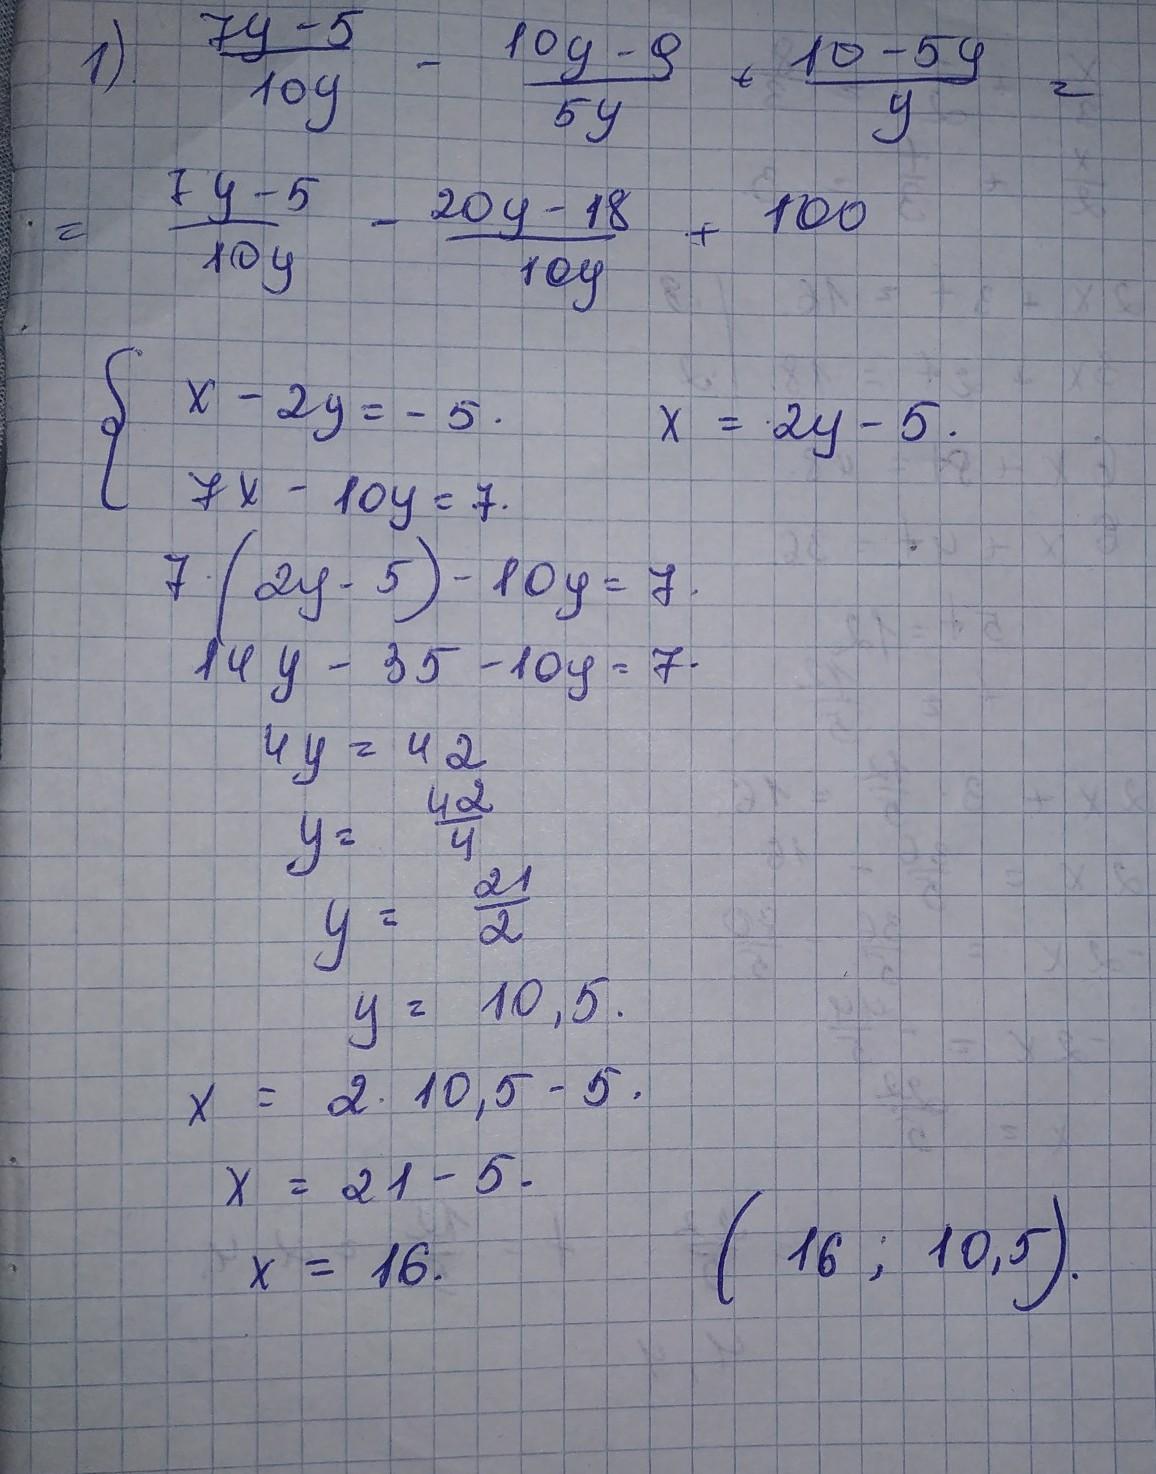 1) (7y - 5)/(10y) - (10y - 9)/(5y) + (10 - 5y)/y =
= (7y - 5)/(10y) - (20y - 18)/(10y) + 100
{ x - 2y = - 5. x = 2y - 5.
7x - 10y = 7.
7·(2y - 5) - 10y = 7.
14y - 35 - 10y = 7.
4y = 42
y = 42/4
y = 21/2
y = 10,5.
x = 2 · 10,5 - 5.
x = 21 - 5.
x = 16. (16 ; 10,5).